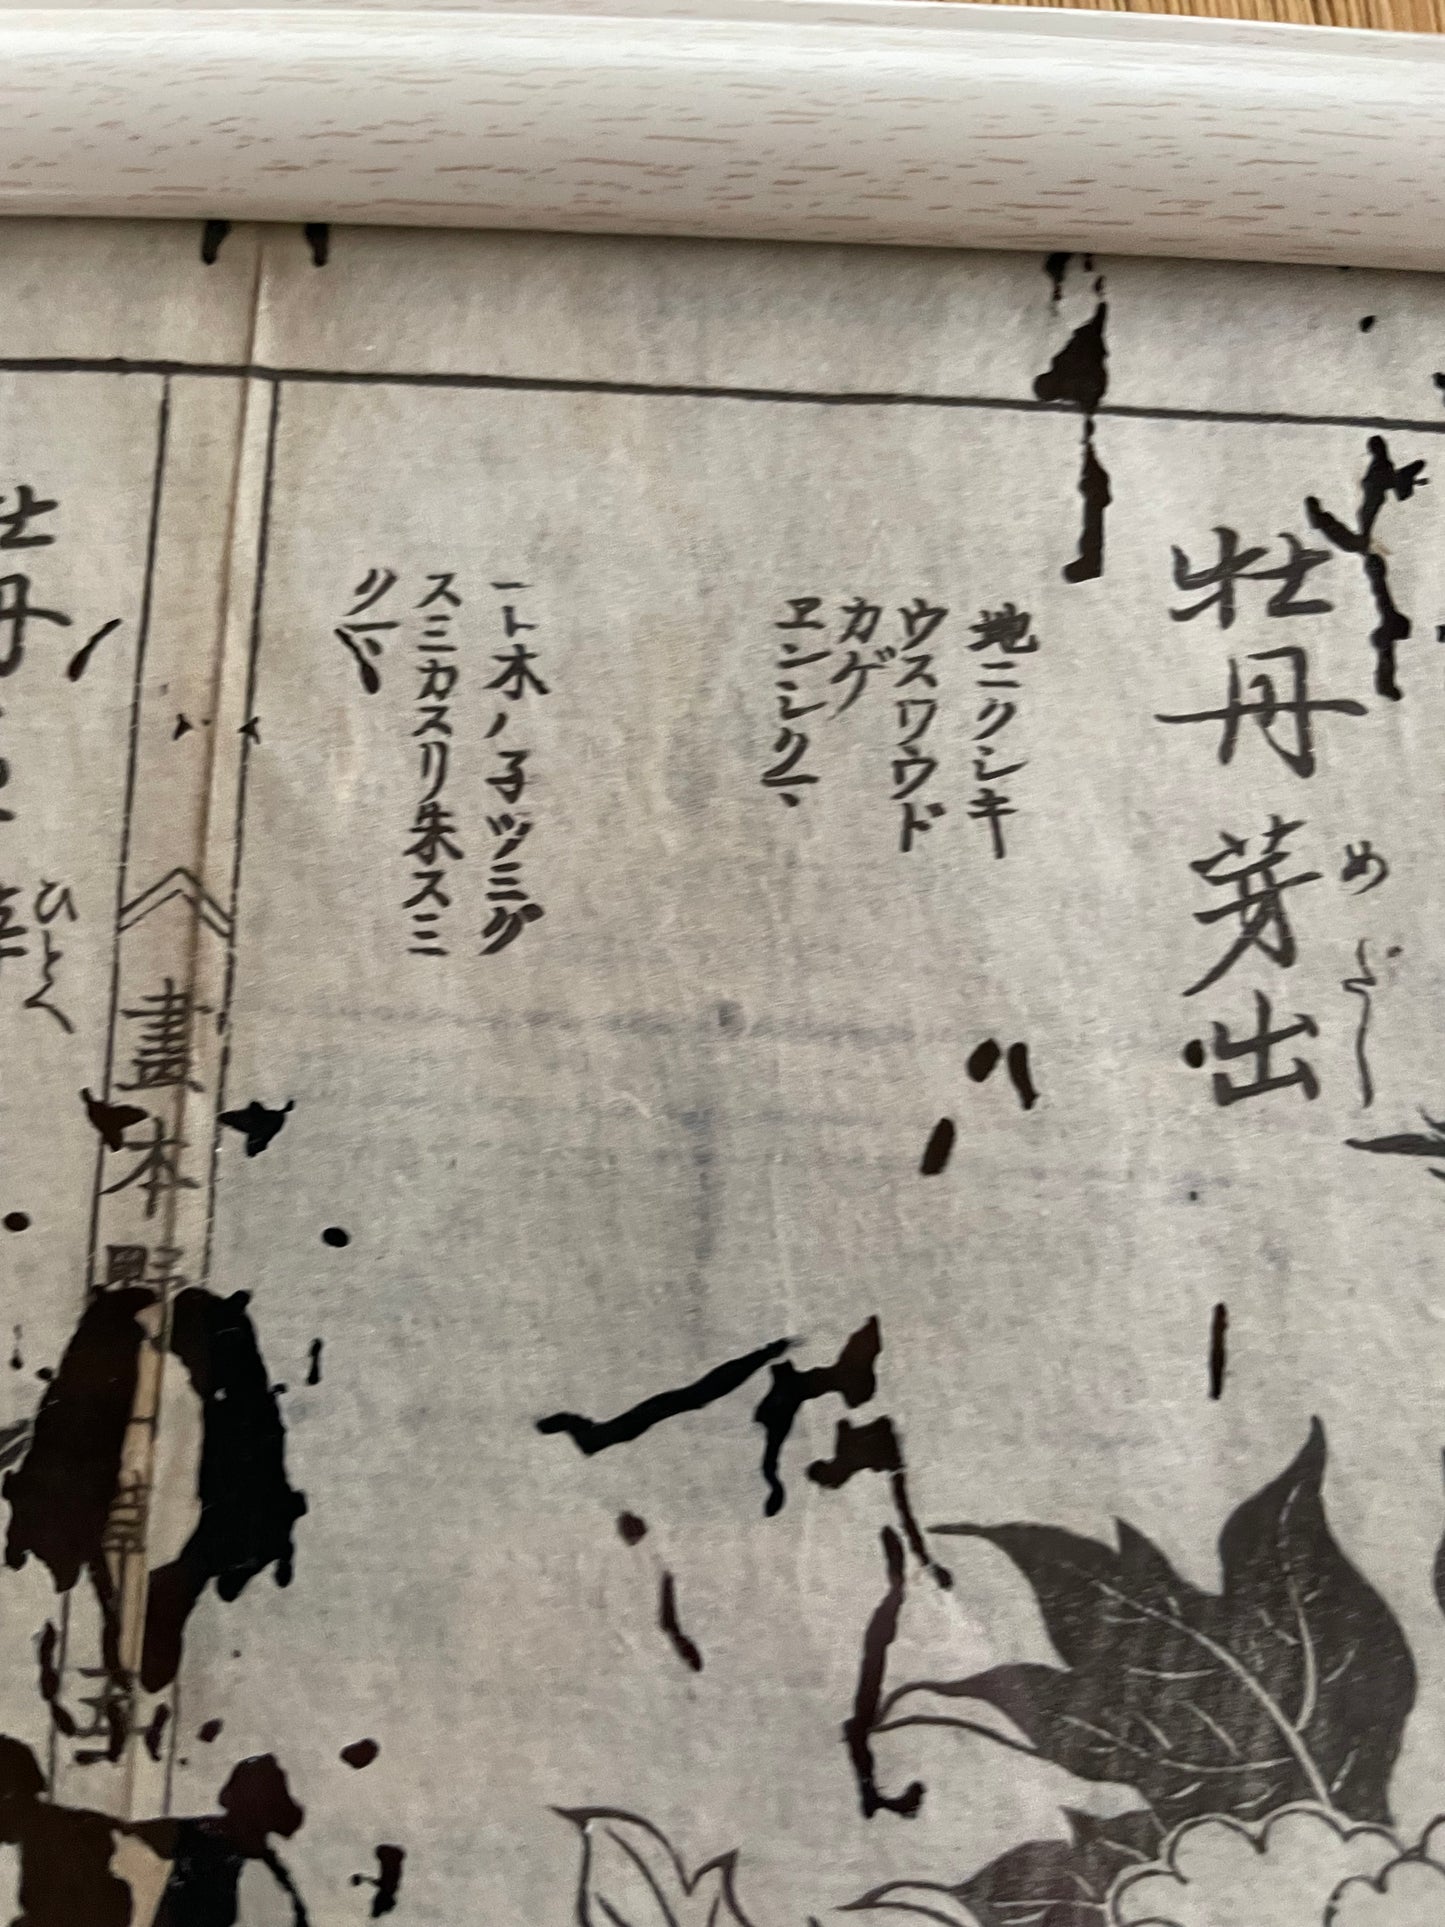 牡丹芽出
めだし
地ニクシキ
ウスワウド
カゲ
ヱンシク
一ト木ノ子ツミグ
スミカスリ朱スミ
クヽ
畫本野
牡丹
ひとへ